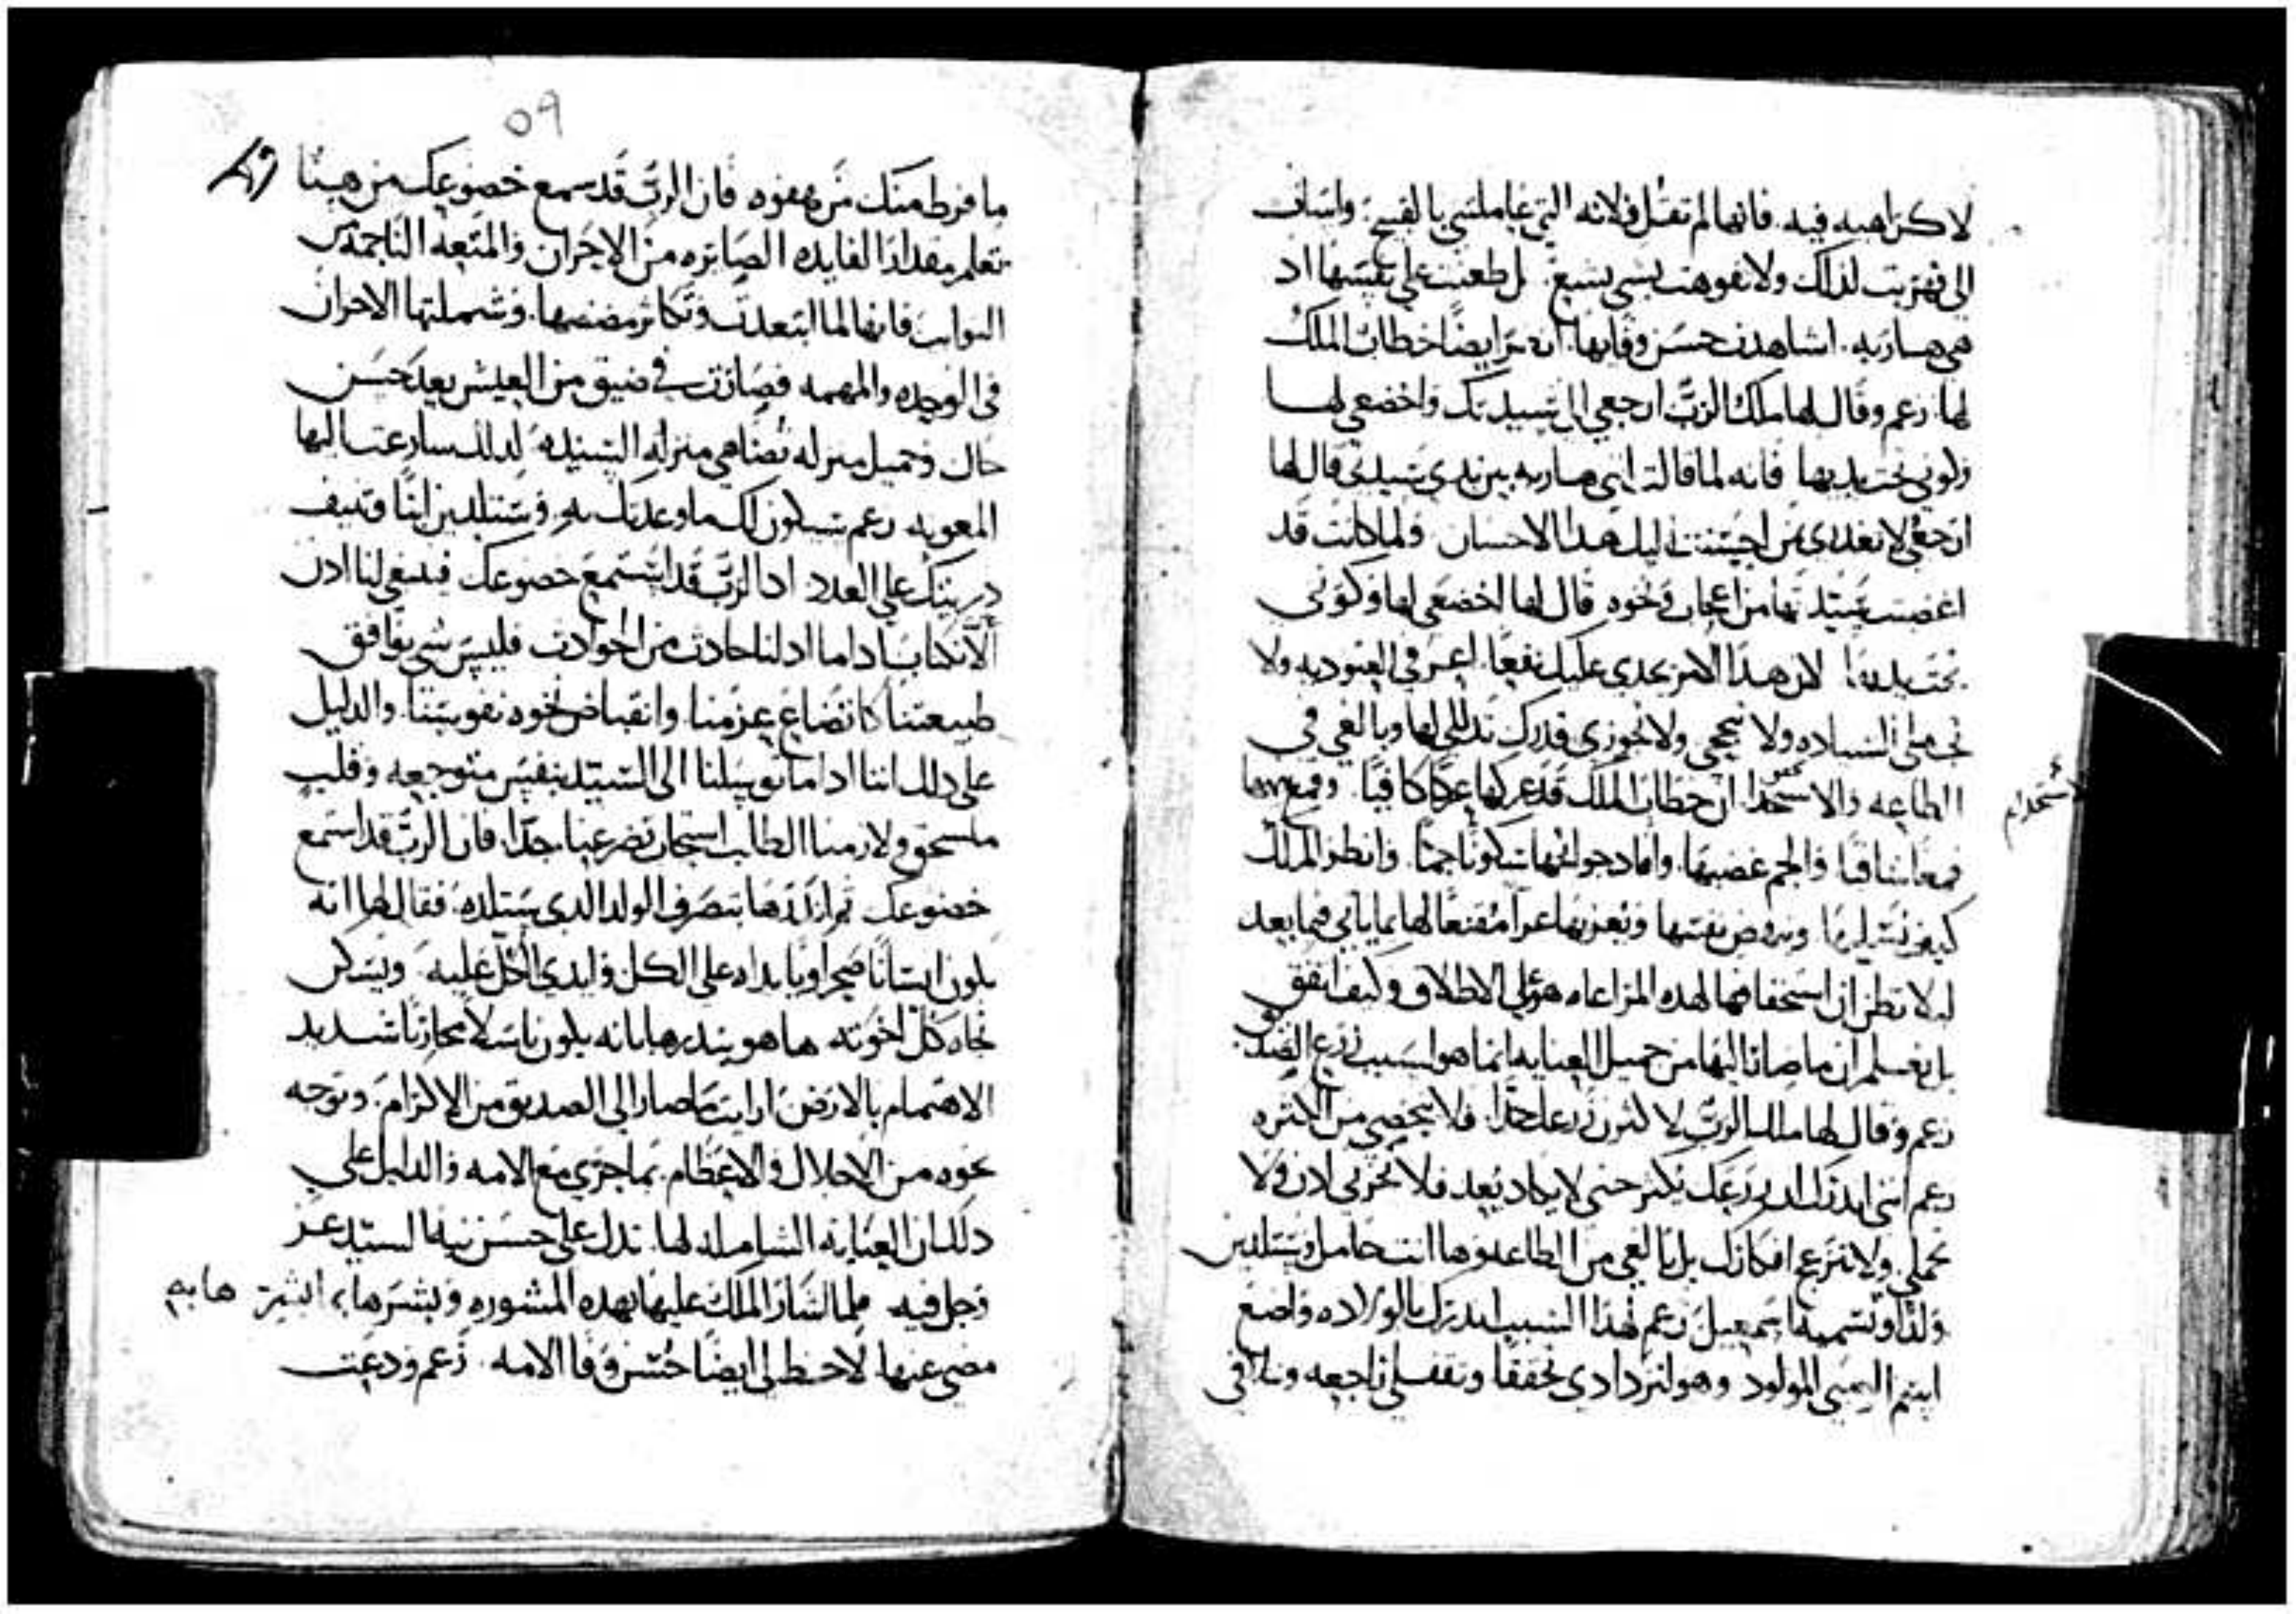 لا كراهيه فيه. فانها لم تقل فلانه التي عاملتني بالقبيح. واساات
الي فهربت لذلك ولا تفوهت بشي بشيع. بل طعنت علي نفسها اد
هي هاربه. اشاهدت حسن وفايها. انضر ايضًا خطاب الملك
لها. زعم وقال لها ملك الربّ ارجعي الي سيدتك واخضعي لها
وكوني تحت يديها فانه لما قالت انني هاربه من يدي سيدتي قال لها
ارجعي لا تبعدي من احسنت اليك هدا الاحسان ولما كانت قد
اغضبت سيدتها من اعجاب ونخوه قال لها اخضعي لها وكوني
تحت يديها لان هدا الامر يجدي عليك نفعًا. في العبوديه ولا
تجهلي السياده ولا تجمحي ولا تجوزي قدرك تدللي لها وبالغي في
الطاعه والاستخدا. ان خطاب الملك قد عركها عركًا كافيًا. وقمعها
قمعًا شافيًا والجم غضبها. وافاد جوانحها سكونًا جمًا. وانظر الملك
كيف ويروض نفسها ويعزيها عزآ مقنعًا لها بما ياتي فيما بعد
ليلا تظن ان استحقاقها لهده المراعاه هو علي الاطلاق وكيف اتفق
بل تعلم ان ما صار اليها من جميل العنايه انما هو لسبب زرع الصديق
زعم وقال لها ملك الربّ لاكثرن زرعك جدًا. فلا يحصي من الكثره
زعم انني اندرك ان زرعك يكثر حتي لا يكاد يعد فلا تحزني ادن ولا
تخملي. ولا تنزع افكارك بل بالغي من الطاعه وها انت حامل وستلدين
ولدًا وتسميه اسمعيل زعم لهذا السبب اندرك بالولاده واضع
اسم المولود وهو لتزدادي تحققًا وتقفلي راجعه وتلافي
الاستخدام
٥٩
ما فرط منك من هفوه فان الربّ قد سمع خضوعك من هينا
تعلم مقدار الفايده الصايره من الاحزان والمنفعه الناجمه من
النوايب فانها لما ابتعدت وتكاثر مضضها. وشملتها الاحزان
في الوحده والمهمه فصارت في ضيق من العيش بعد حسن
حال وجميل منزله تضاهي منزله السيده لدلك سارعت اليها
المعونه زعم سيكون لك ما وعدتك به. وستلدين ابنًا وتنيف
دريتك علي العدد اد الربّ قد استمع خضوعك فينبغي لنا ادن
ألّا نكتايب اداما ادلنا حادث من الحوادث فليس شي يوافق
طبيعتنا كاتضاع عزمنا وانقباض نخوه نفوسنا. والدليل
علي دلك اننا اداما توسلنا الي السيد بنفس متوجعه وقلب
منسحق ولازمنا الطلب استجاب تضرعنا جدًا. فان الربّ قد استمع
خضوعك ثم انذرها بتصرف الولد الدي ستلده. فقال لها انه
يكون انسانًا ضجرا ويا يداه علي الكل وايدي الكل عليه. ويسكن
تجاه كل اخوته ها هو ينذرها بانه يكون باسلًا محاربًا شديد
الاهتمام بالارض ارايت ما صار الي الصديق من الاكرام. وتوجه
نحوه من الاجلال والاعظام. بما جري مع الامه والدليل علي
دلك ان العنايه الشامله لها. تدل علي حسن نيه السيد عز
وجل فيه فلما اشار الملك عليها بهده المشوره وبشرها.
مضي عنها لاحظ لي ايضًا حسن وفا الامه. زعم ودعت